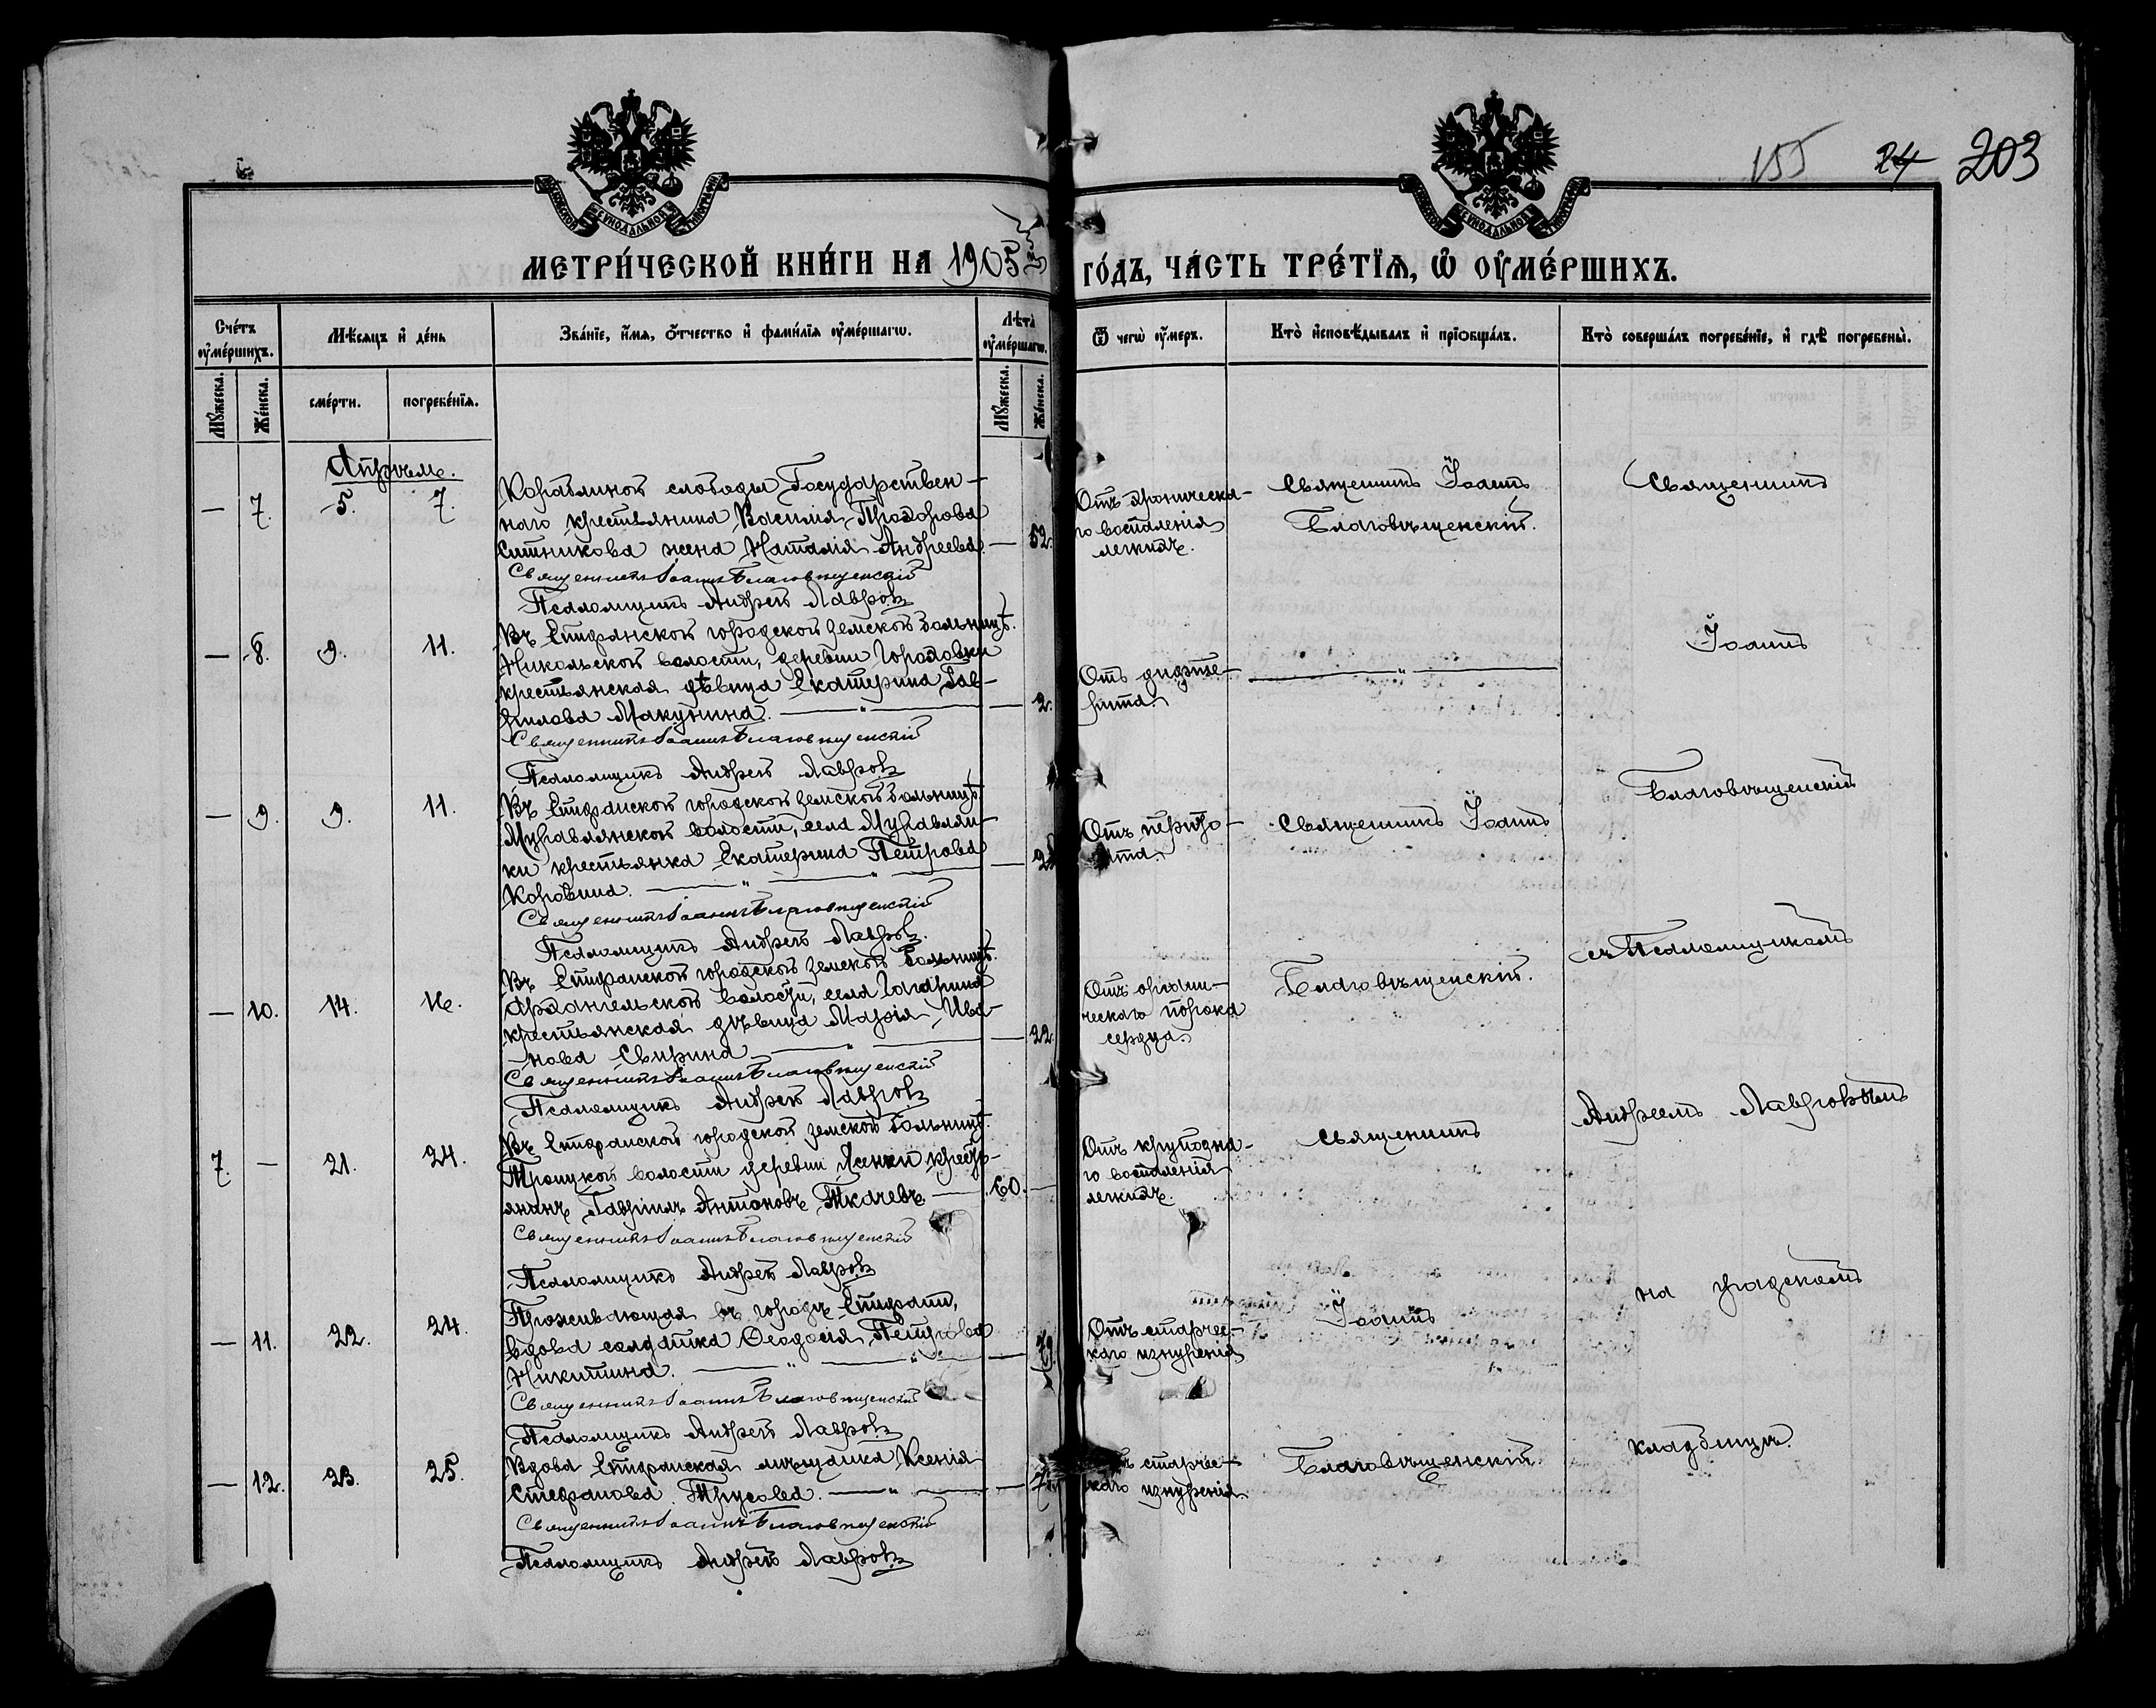 155 24 203
МЕТРИ́ЧЕСКОЙ КНИ́ГИ НА 1905 ГО́ДЪ, ЧА́СТЬ ТРЕ́ТЇѦ, Ѡ҆ ОУ҆МЕ́РШИХЪ.
Сче́тъ оу҆ме́ршихъ.
Мѣ́сѧцъ и҆ де́нь
Зва́нїе, и҆́мѧ, ѻ҆́тчество и҆ фами́лїѧ оу҆ме́ршагѡ.
Лѣта̀ оу҆ме́ршагѡ.
Ѿ чегѡ̀ оу҆́меръ.
Кто̀ и҆сповѣ́дывалъ и҆ прїѻбща́лъ.
Кто̀ соверша́лъ погребе́нїе, и҆ гдѣ̀ погребены̀.
Мꙋ́жеска.
Же́нска.
сме́рти.
погребе́нїѧ.
Мꙋ́жеска.
Же́нска.
Апрѣль.
— 7. 5. 7.
Кораблиной слободы Государствен-
наго крестьянина Василія Прохорова
Ситникова жена Наталія Андреева — 52.
Священникъ Іоаннъ Благовѣщенскій
Псаломщикъ Андрей Лавровъ
Отъ хроническа-
го воспаленія
легкихъ.
Священникъ Іоаннъ
Благовѣщенскій.
Священникъ
— 8. 9. 11.
Въ Епифанской городской земской больницѣ.
Никольской волости, деревни
крестьянская дѣвица Екатерина Гав-
рилова Макунина. — „ — — 2.
Священникъ Іоаннъ Благовѣщенскій
Псаломщикъ Андрей Лавровъ
Отъ дифте-
рита.
— „ —
Іоаннъ
— 9. 9. 11.
Въ Епифанской городской земской больницѣ
Муравлянской волости, села Муравлян-
ки крестьянка Екатерина Петрова
Коровина. — „ — „ —
Священникъ Іоаннъ Благовѣщенскій
Псаломщикъ Андрей Лавровъ.
Отъ
Священникъ Іоаннъ
Благовѣщенскій
— 10. 14. 16.
Въ Епифанской городской земской больницѣ.
Архангельской волости, села Гагарина
крестьянская дѣвица Марія Ива-
нова Свирина — „ — — 22.
Священникъ Іоаннъ Благовѣщенскій
Псаломщикъ Андрей Лавровъ
Отъ органи-
ческаго порока
сердца.
Благовѣщенскій.
съ Псаломщикомъ
7. — 21. 24.
Въ Епифанской городской земской больницѣ.
Троицкой волости деревни Ясенки кресть-
янинъ Гавріилъ Антоновъ Ткачевъ. — 60. —
Священникъ Іоаннъ Благовѣщенскій
Псаломщикъ Андрей Лавровъ
Отъ крупозна-
го воспаленія
легкихъ.
Священникъ
Андреемъ Лавровымъ
— 11. 22. 24.
Проживающая въ городѣ Епифани,
вдова солдатка Ѳеодосія Петрова
Никитина. — „ — „ — — 79.
Священникъ Іоаннъ Благовѣщенскій
Псаломщикъ Андрей Лавровъ
Отъ старчес-
каго изнуренія
Іоаннъ
на градскомъ
— 12. 23. 25.
Вдова Епифанская мѣщанка Ксенія
Стефанова Трусова. — „ — —
Священникъ Іоаннъ Благовѣщенскій
Псаломщикъ Андрей Лавровъ
старчес-
каго изнуренія.
Благовѣщенскій.
кладбищѣ.